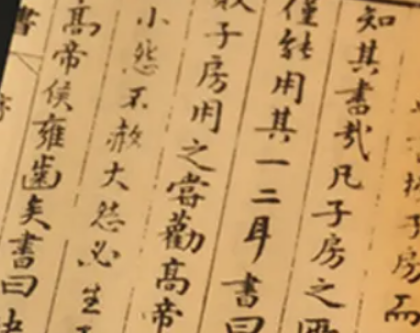 子房
知其書哉凡子房之
僅能用其一二耳書曰
子房用之嘗勸高帝
小怨不赦大怨必生
高帝侯雍齒矣書曰
書